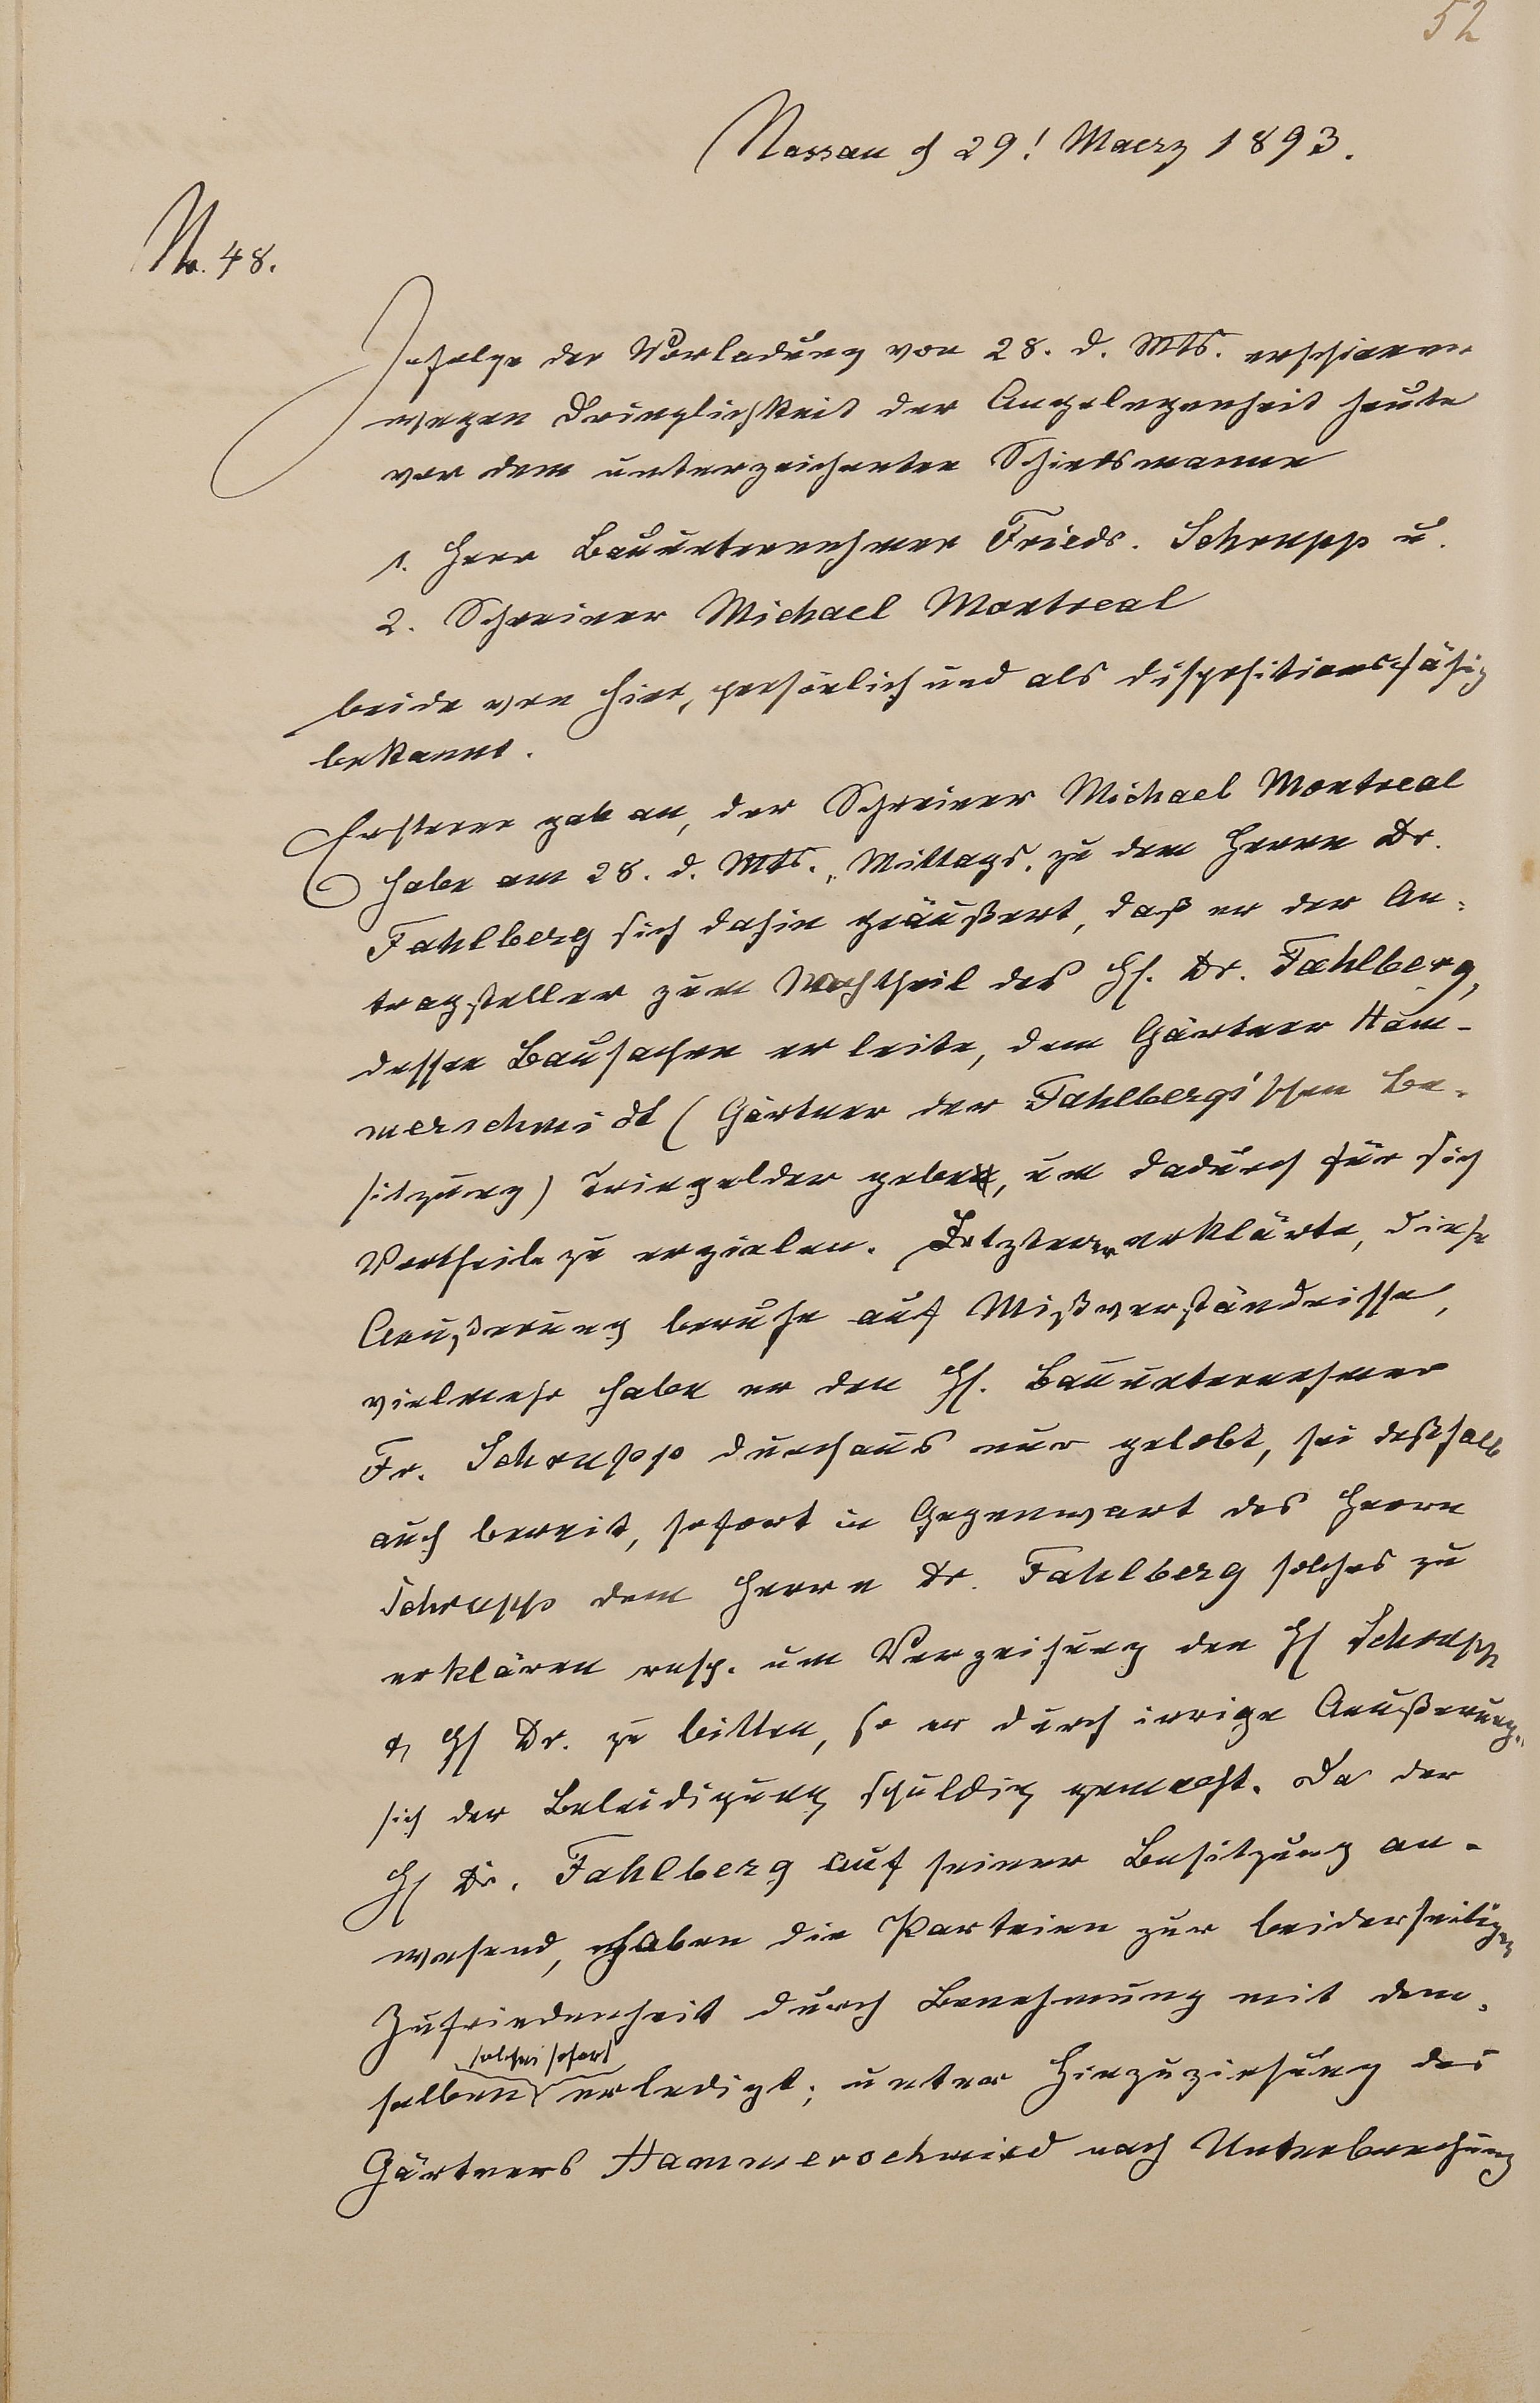 52
Nassau d 29! Maerz 1893.
No. 48.
Infolge der Vorladung von 28. d. Mts. erschienen
wegen Dringlichkeit der Angelegenheit heute
vor dem unterzeichneten Schiedsmanne
1. Herr Bauunternehmer Friedr. Schrupp u.
2. Schreiner Michael Montreal
beide von hier, persönlich und als dispositionsfähig
bekannt.
Ersterer gab an, der Schreiner Michael Montreal
habe am 28. d. Mts., Mittags, zu dem Herrn Dr.
Fahlberg sich dahin geäußert, daß er der An-
tragsteller zum Nachtheil des H. Dr. Fahlberg,
dessen Bausachen er leite, dem Gärtner Ham-
merschmidt (Gärtner der Fahlberg'schen Be-
sitzung) Tringelder gebe, um dadurch für sich
Vortheile zu erzielen. Letzterer erklärte, diese
Aeußerung beruhe auf Mißverständnisse,
vielmehr habe er den H. Bauunternehmer
Fr. Schrupp durchaus nur gelobt, sei deßhalb
auch bereit, sofort in Gegenwart des Herrn
Schrupp dem Herrn Dr. Fahlberg solches zu
erklären resp. um Verzeihung den H Schrupp
& H Dr. zu bitten, so er durch irrige Aeußerung
sich der Beleidigung schuldig gemacht. Da der
H Dr. Fahlberg auf seiner Besitzung an-
wesend, haben die Parteien zur beiderseitigen
Zufriedenheit durch Benehmung mit dem-
solches sofort
selben erledigt; unter Hinzuziehung des
Gärtners Hammerschmied nach Unterbrechung